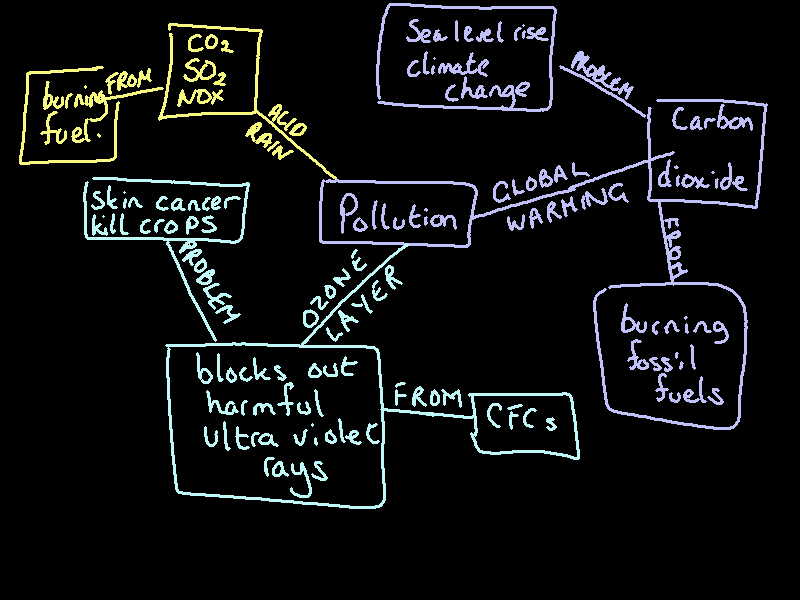 Sea level rise
climate
change
CO2
SO2
NOX
FROM
burning
fuel.
ACID
RAIN
PROBLEM
Carbon
dioxide
GLOBAL
WARMING
Pollution
Skin cancer
kill croPS
PROBLEM
OZONE
LAYER
FROM
burning
fossil
fuels
blocks out
harmful
ultra violet
rays
FROM
CFCs